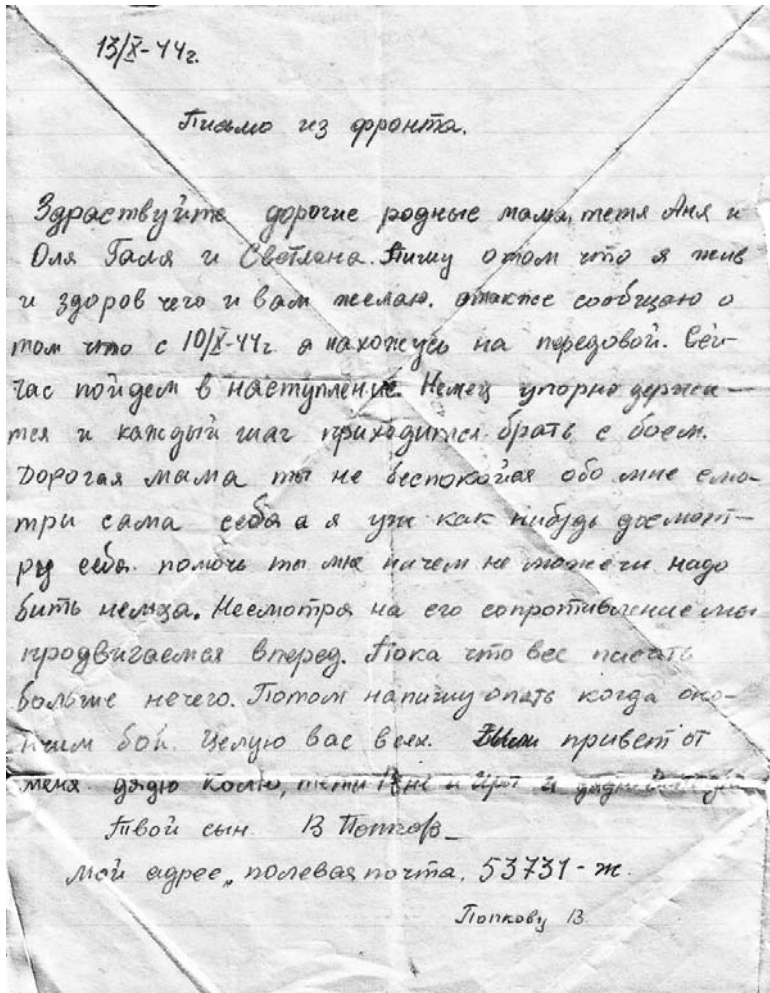 13/X-44г.
Письмо из фронта.
Здраствуйте дорогие родные мама, тетя Аня и
Оля Галя и Светлана. Пишу о том что я жив
и здоров чего и вам желаю. а также сообщаю о
том что с 10/X-44г. я нахожусь на передовой. Сей-
час пойдем в наступление. Немец упорно держи-
тся и каждый шаг приходится брать с боем.
Дорогая мама ты не беспокойся обо мне смо-
три сама себя а я уж как нибудь досмот-
рю себя. помочь ты мне ничем не можеш надо
бить немца. Несмотря на его сопротивление мы
продвигаемся вперед. Пока что все писать
больше нечего. Потом напишу опять когда око-
нчим бой. Целую вас всех. привет от
меня дядю Колю, тети и и
Твой сын В Попков
Мой адрес „ полевая почта, 53731-ж.
Попкову В